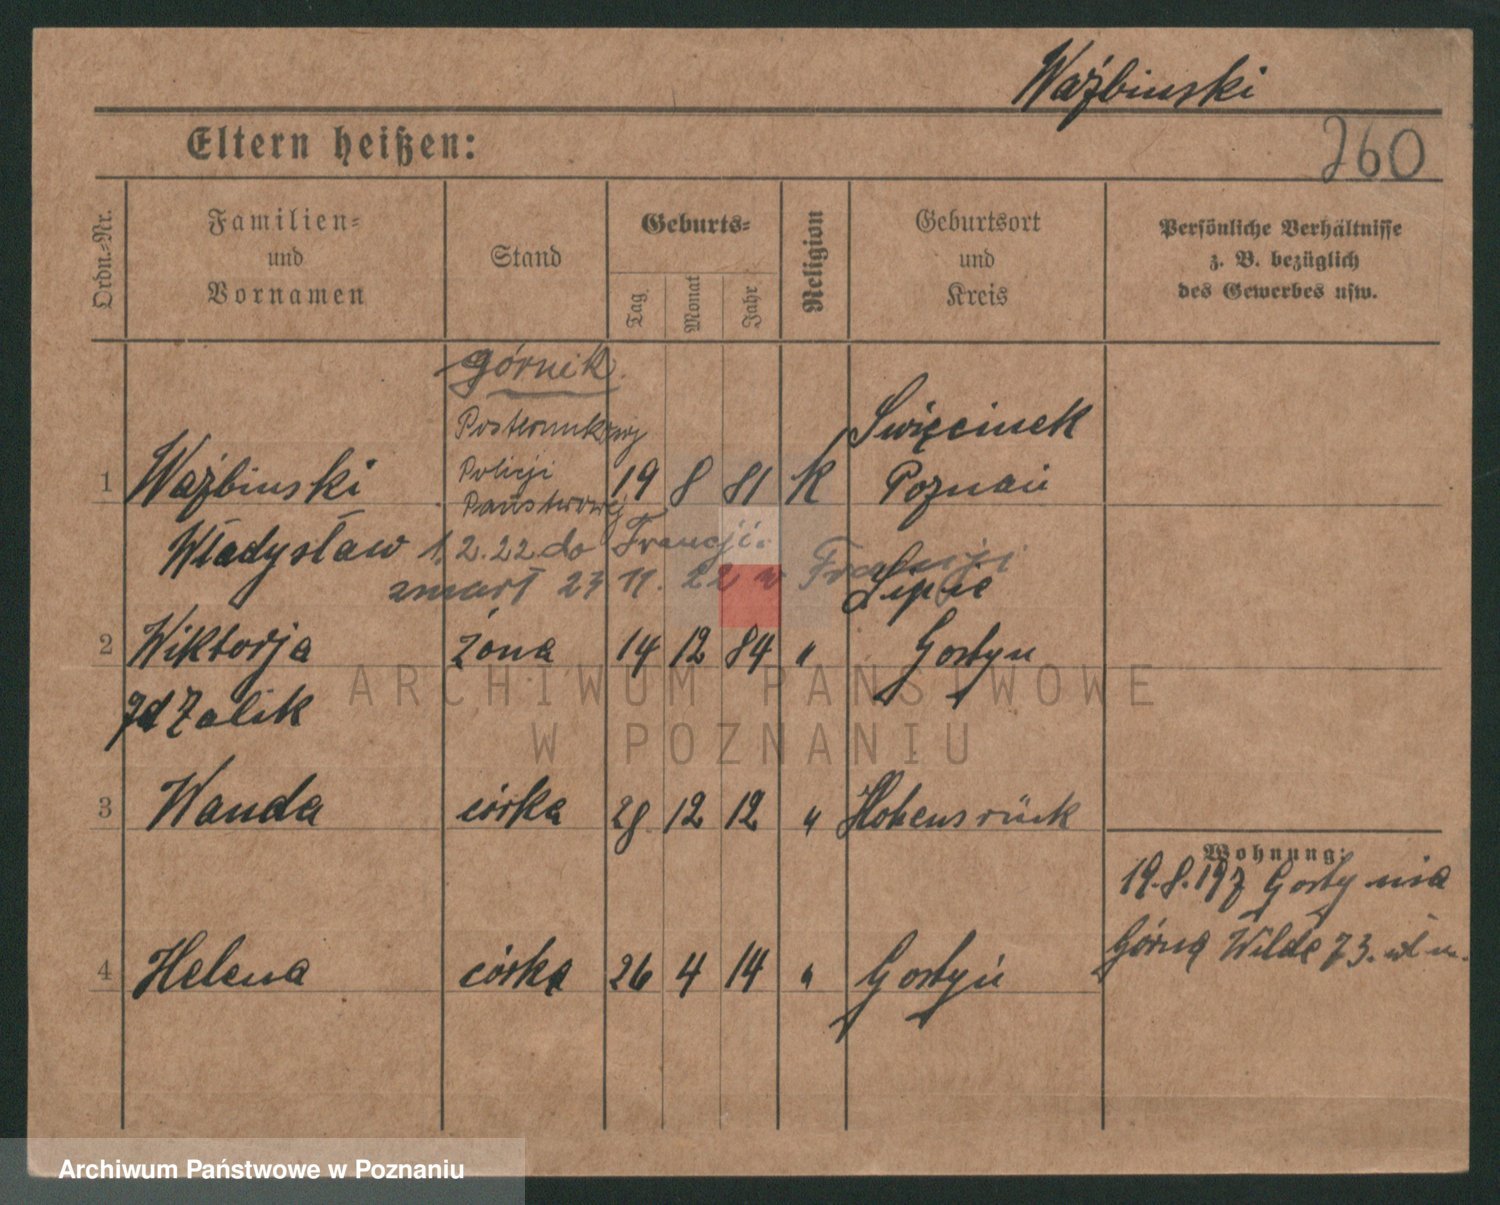 Ważbinski
Eltern heißen:
260
Ordn.-Nr.
Familien-
und
Vornamen
Stand
Geburts-
Tag
Monat
Jahr
Religion
Geburtsort
und
Kreis
Persönliche Verhältnisse
z. B. bezüglich
des Gewerbes usw.
górnik.
Posterunkowy
Policji
Państwowej
1 Ważbinski 19 8 81 K Swięcinek
Poznań
Władysław 1.2.22 do Francji.
zmarł 23 11. 22 w Francji
Lipie
2 Wiktorja żona 14 12 84 " Gostyn
Zalik
3 Wanda córka 28 12 12 " Hohensrück
Wohnung:
19.8.197 Gostynia
Górna Wilda 73.
4 Helena córka 26 4 14 " Gostyń
ARCHIWUM PAŃSTWOWE
W POZNANIU
Archiwum Państwowe w Poznaniu